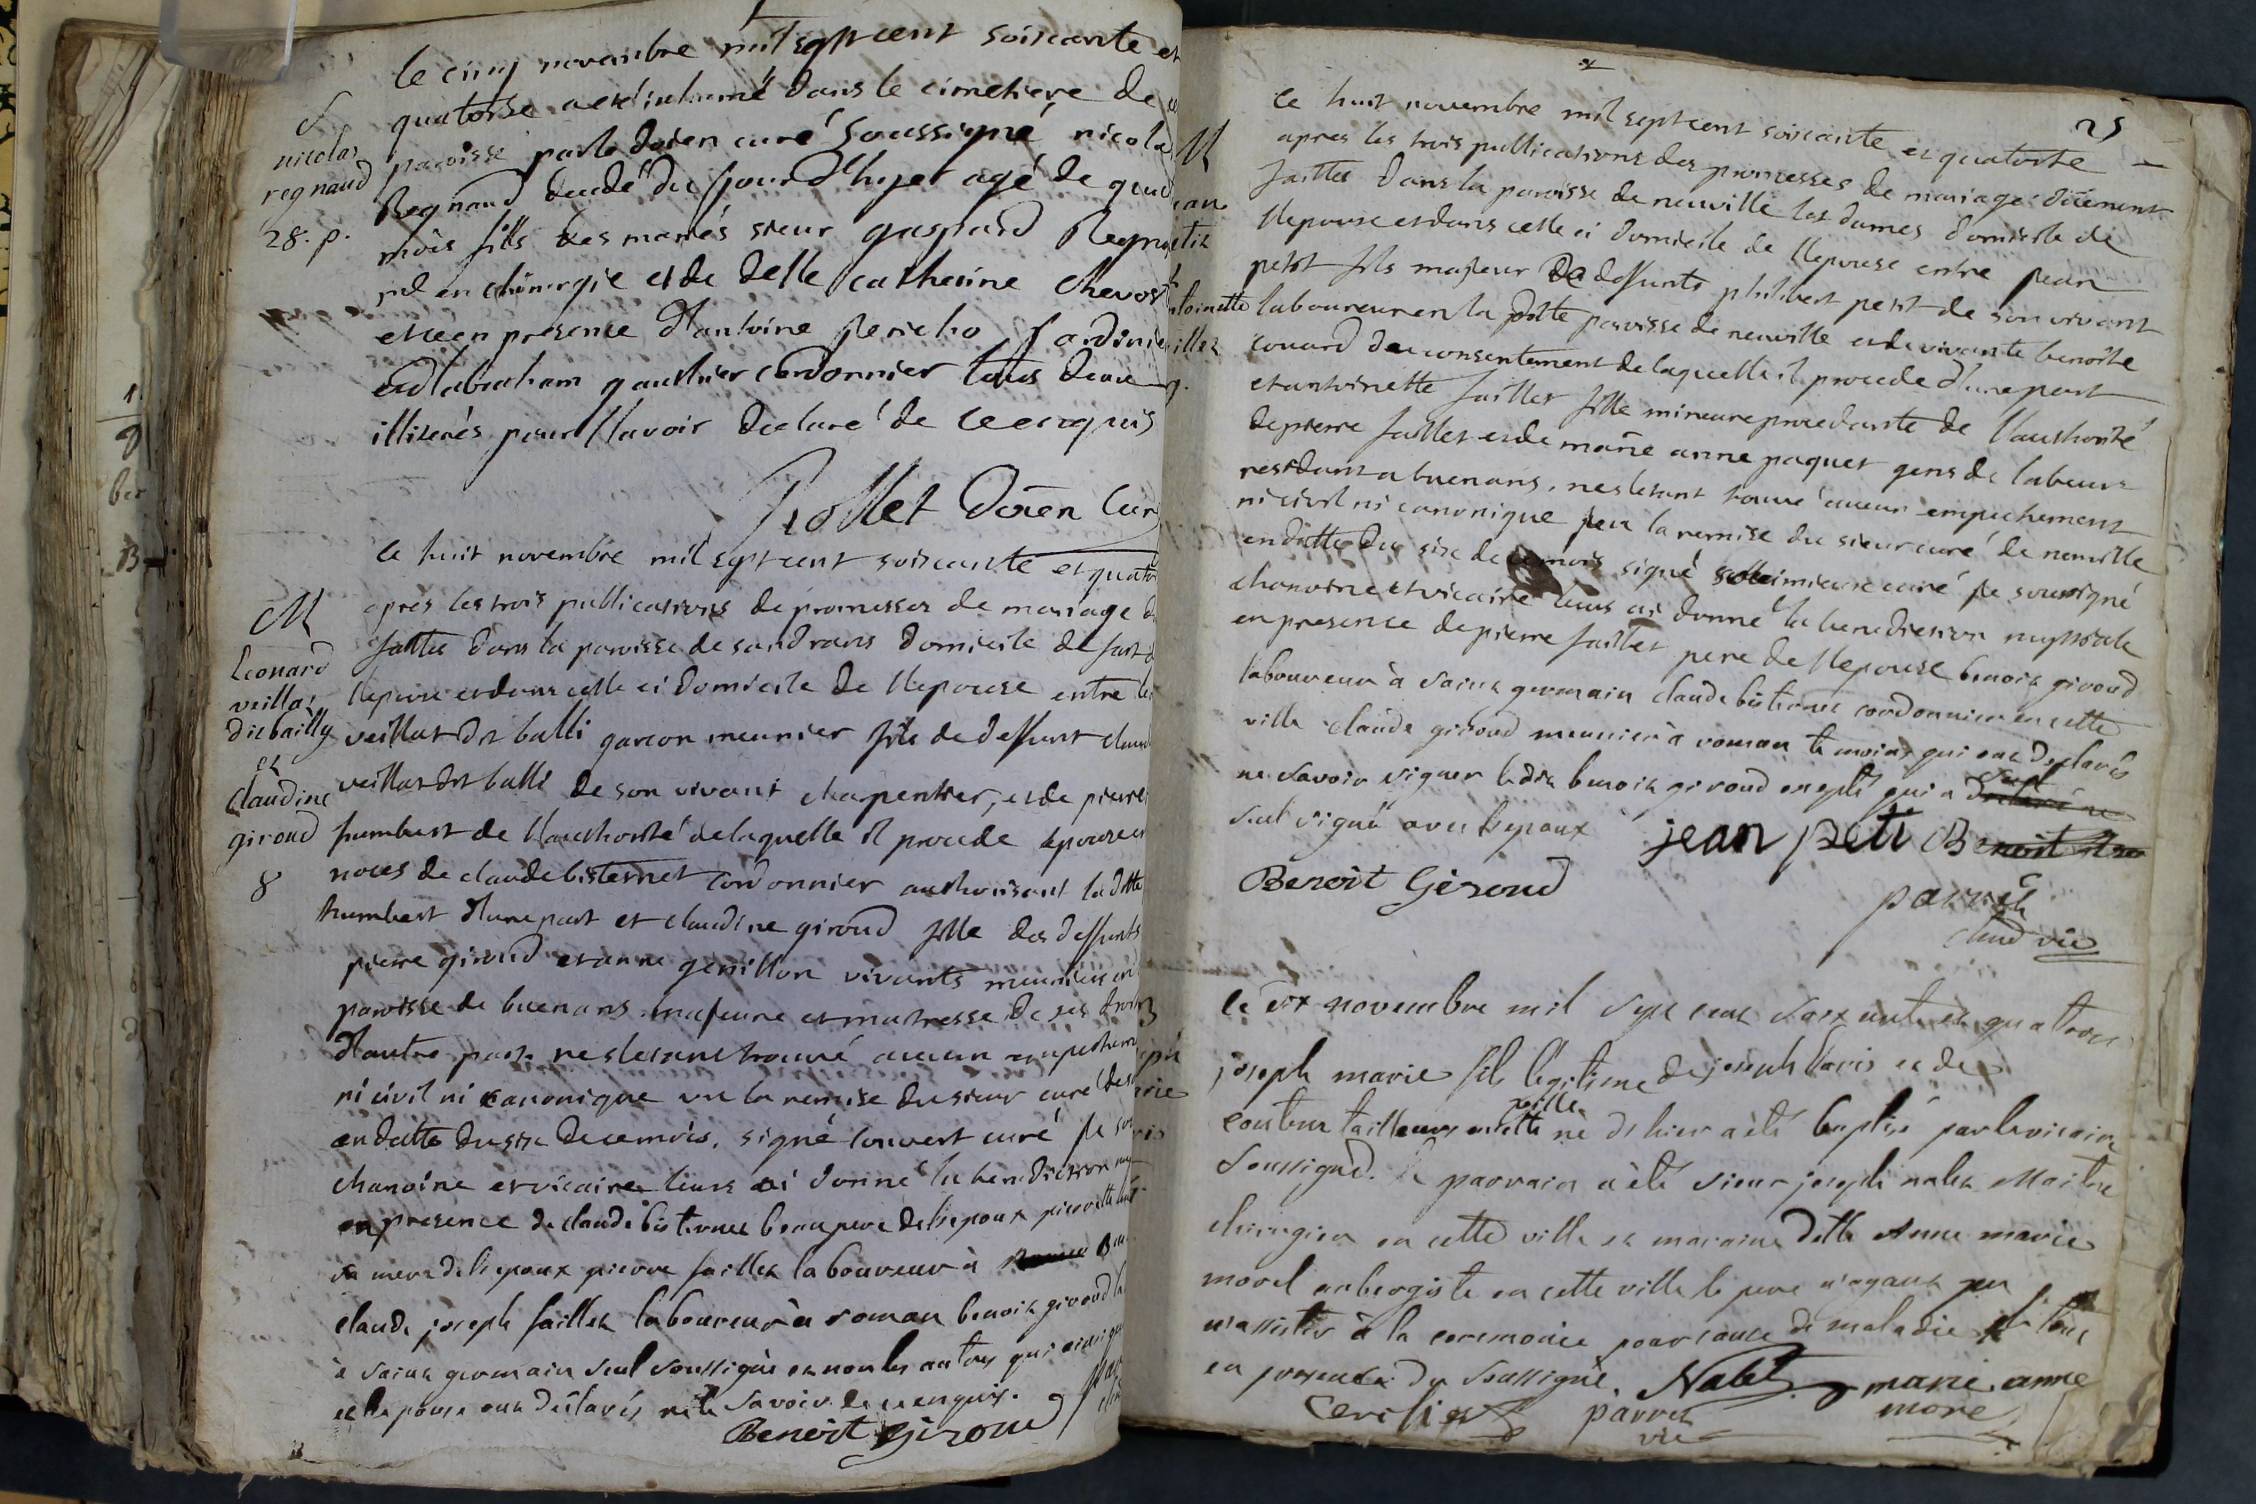 le cinq novembre mil sept cent soixante et
quatorse a eté inhumé dans le cimetiere de ce
paroisse par le doïen curé soussigné nicola
Regnaud decedé du jour d'hyer agé de quat
mois fills des mariés sieur gaspard Regna
en chirurgie et de delle catherine chevos
et ce en presence d'antoine jericho jardinie
et d'abraham gauthier cordonnier tous deux
illiterés pour l'avoir declaré de ce enquis
doïen Cur
S
nicolas
regnaud
28. p.
le huit novembre mil sept cent soixante et quator
apres les trois publications de promesses de mariage d
faittes dans la paroisse de sandrans domicile de fait d
l'epoux et dans celle ci domicile de l'epouse entre le
veillat dit balli garcon meunier fils de deffunt claud
veillat dit balli de son vivant charpentier, et de pierre
humbert de l'authorité de laquelle il procede epouse en
noces de claude bisternet cordonnier authorisant la ditte
humbert d'une part et claudine giroud fille des deffunts
pierre giroud et anne genillon vivants meuniers en
paroisse de buenans majeure et maitresse de ses droits
d'autre part. ne s'etant trouvé aucun empechem
ni civil ni canonique vu la remise du sieur curé de s
en datte du six de ce mois. signé convert curé je sou
chanoine et vicaire leurs ai donné la benediction nup
en presence de claude bisternet beau pere de l'epoux pierrette
sa mere de l'epoux pierre faillet laboureur à
claude joseph faillet laboureur à roman benoit giroud la
à saint germain seul soussigné et non les autres qui ainsi que
et l'epouse ont déclarés ne le savoir de ce enquis.
Benoit Giroud
M
Leonard
veillat
dit bailly
et
Claudine
giroud
8
25
le huit novembre mil sept cent soixante et quatorse
apres les trois publications des promesses de mariage düement
faittes dans la paroisse de neuville les dames domicile de
l'epoux et dans celle ci domicile de l'epouse entre jean
petit fils majeur de deffunts philibert petit de son vivant
laboureur en la ditte paroisse de neuville et de vivante benoite
couard du consentement de laquelle il procede d'une part
et antoinette faillet fille mineure procedante de l'authorité
de pierre faillet et de marie anne paquet gens de labeur
residants a buenans. ne s'etant trouvé aucun empechement
ni civil ni canonique veu la remise du sieur curé de neuville
en datte du six de ce mois signé curé je soussigné
chanoine et vicaire leurs ai donné la benediction nuptiale
en presence de pierre faillet pere de l'epouse benoit giroud
laboureur à saint germain claude bisternet cordonnier en cette
ville claude giroud meunier à roman temoins qui ont declarés
ne savoir signer le dit benoit giroud excepté qui a
seul signé avec l'epoux jean peti Benoit
Benoit Giroud
parret
vic
le dix novembre mil sept cent soixante et quatorse
joseph marie fils légitime de joseph Paris et de
tailleur en cette ville né d'hier a été baptisé par le vicaire
soussigné. le parrain a été sieur joseph nalet Maitre
chirurgien en cette ville et maraine delle Anne marie
morel aubergiste en cette ville le pere n'ayant peu
assister à la ceremonie pour cause de maladie le tout
en presence du soussigné. Nalet marie anne
parret more
vic